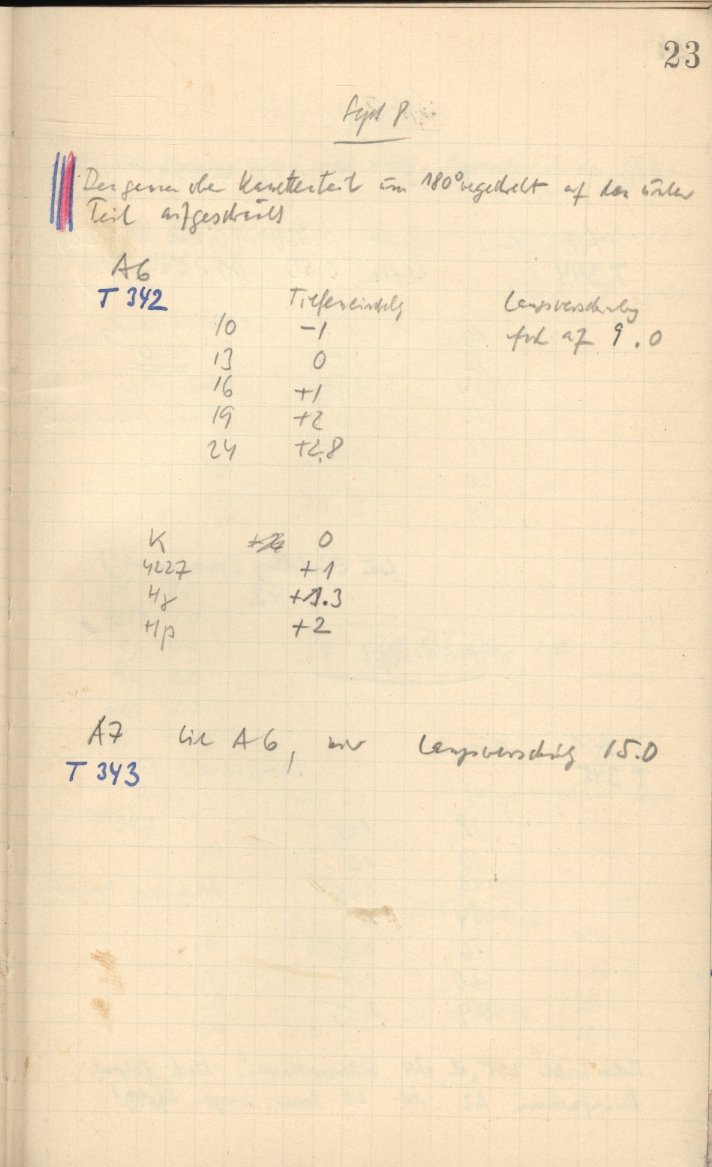 23
Sept 8
Der ganze obere Kassettenteil um 180° umgedreht auf den untern
Teil aufgeschraubt
A6
T 342
Tiefeneinstlg Längsverschiebg
10 -1 fest auf 9.0
13 0
16 +1
19 +2
24 +2.8
K 0
4227 +1
Hγ +1.3
Hβ +2
A7 wie A6, nur Längsverschiebg 15.0
T 343